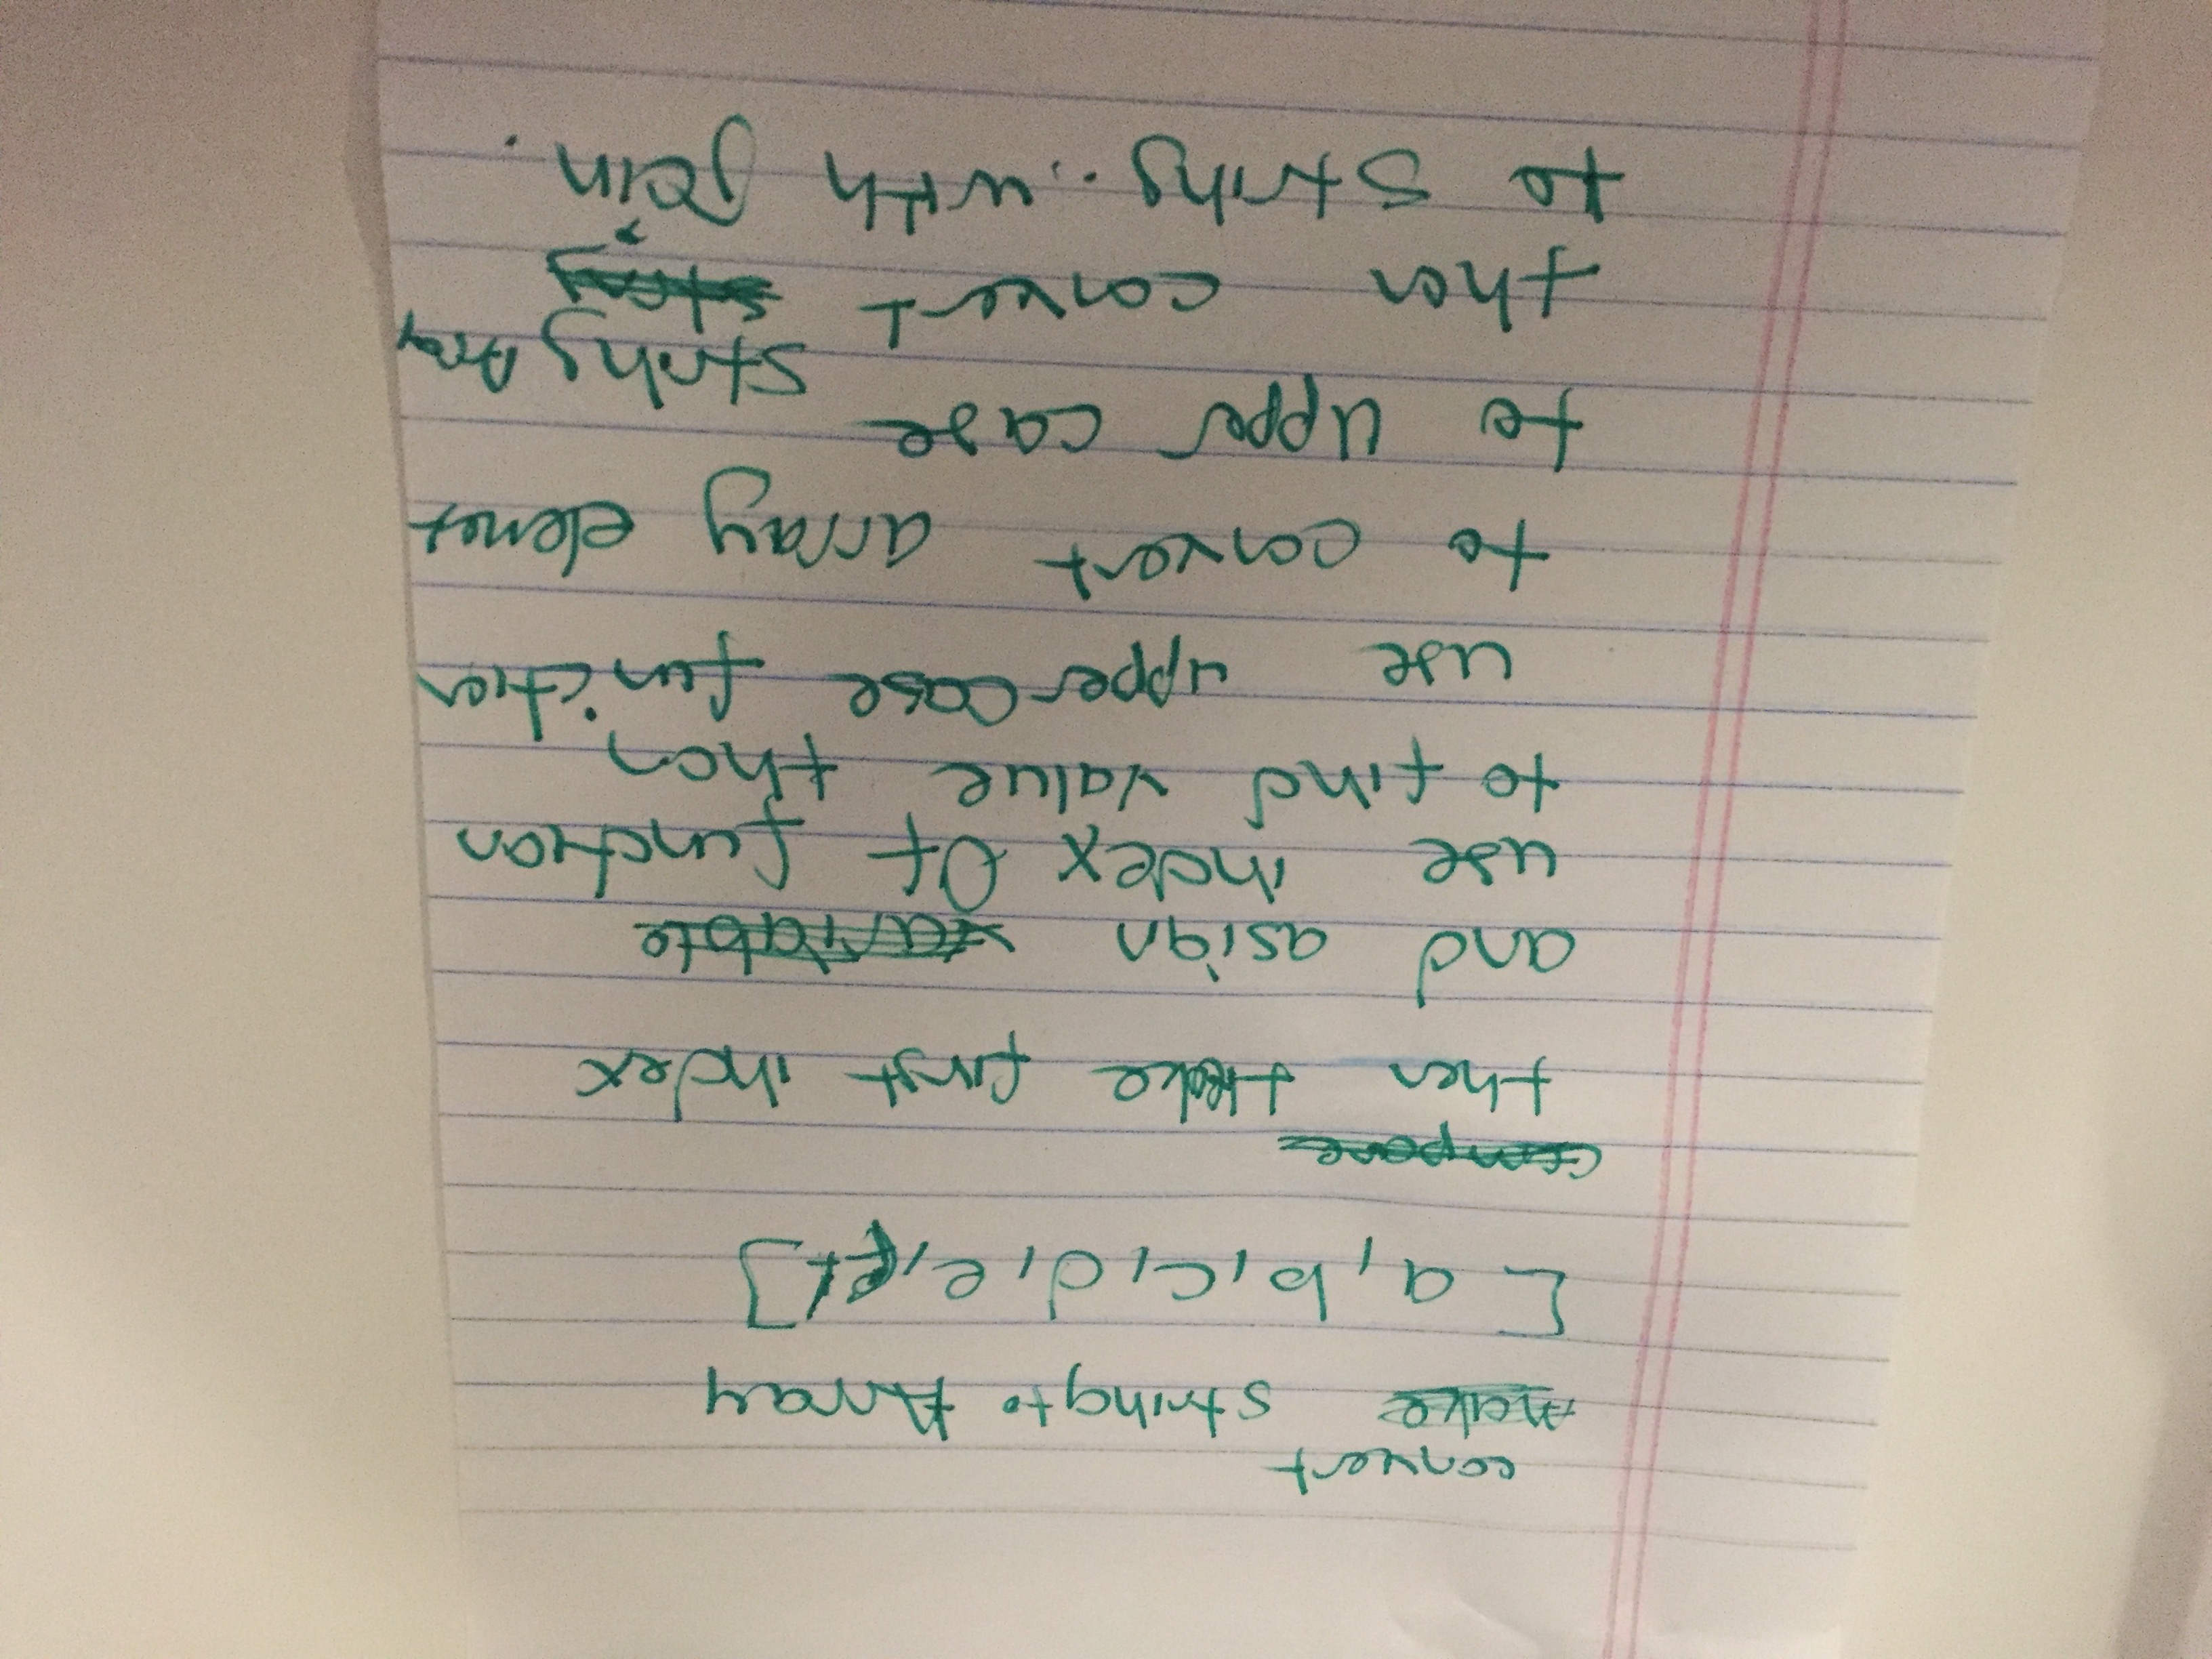 convert
make string to Array
[ a, b, c, d, e, f, ]
Compare
then take first index
and asign variable
use index Of function
to find value than
use upper case function
to convert array element
to upper case
than convert string Array
to string. with join.